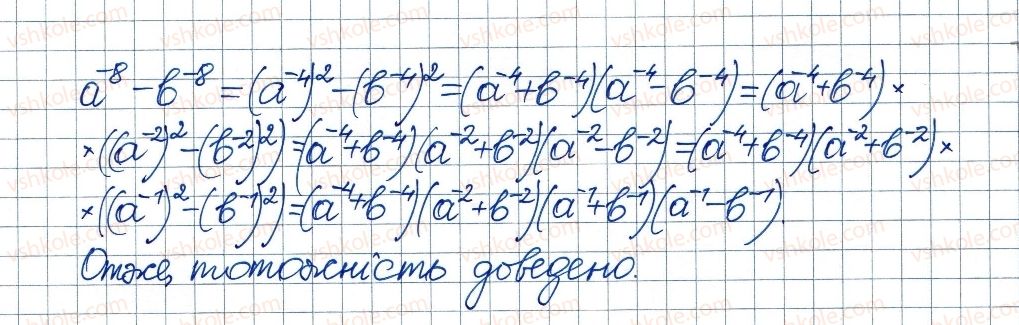 a⁻⁸ - b⁻⁸ = (a⁻⁴)² - (b⁻⁴)² = (a⁻⁴ + b⁻⁴)(a⁻⁴ - b⁻⁴) = (a⁻⁴ + b⁻⁴) ×
× ((a⁻²)² - (b⁻²)²) = (a⁻⁴ + b⁻⁴)(a⁻² + b⁻²)(a⁻² - b⁻²) = (a⁻⁴ + b⁻⁴)(a⁻² + b⁻²) ×
× ((a⁻¹)² - (b⁻¹)²) = (a⁻⁴ + b⁻⁴)(a⁻² + b⁻²)(a⁻¹ + b⁻¹)(a⁻¹ - b⁻¹)
Отже, тотожність доведено.